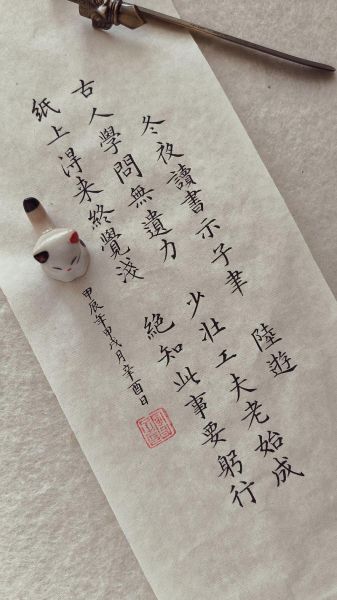 冬夜讀書示子聿 陸遊
古人學問無遺力 少壯工夫老始成
紙上淂来終覺淺 絕知此事要躬行
甲辰年甲戌月辛酉日